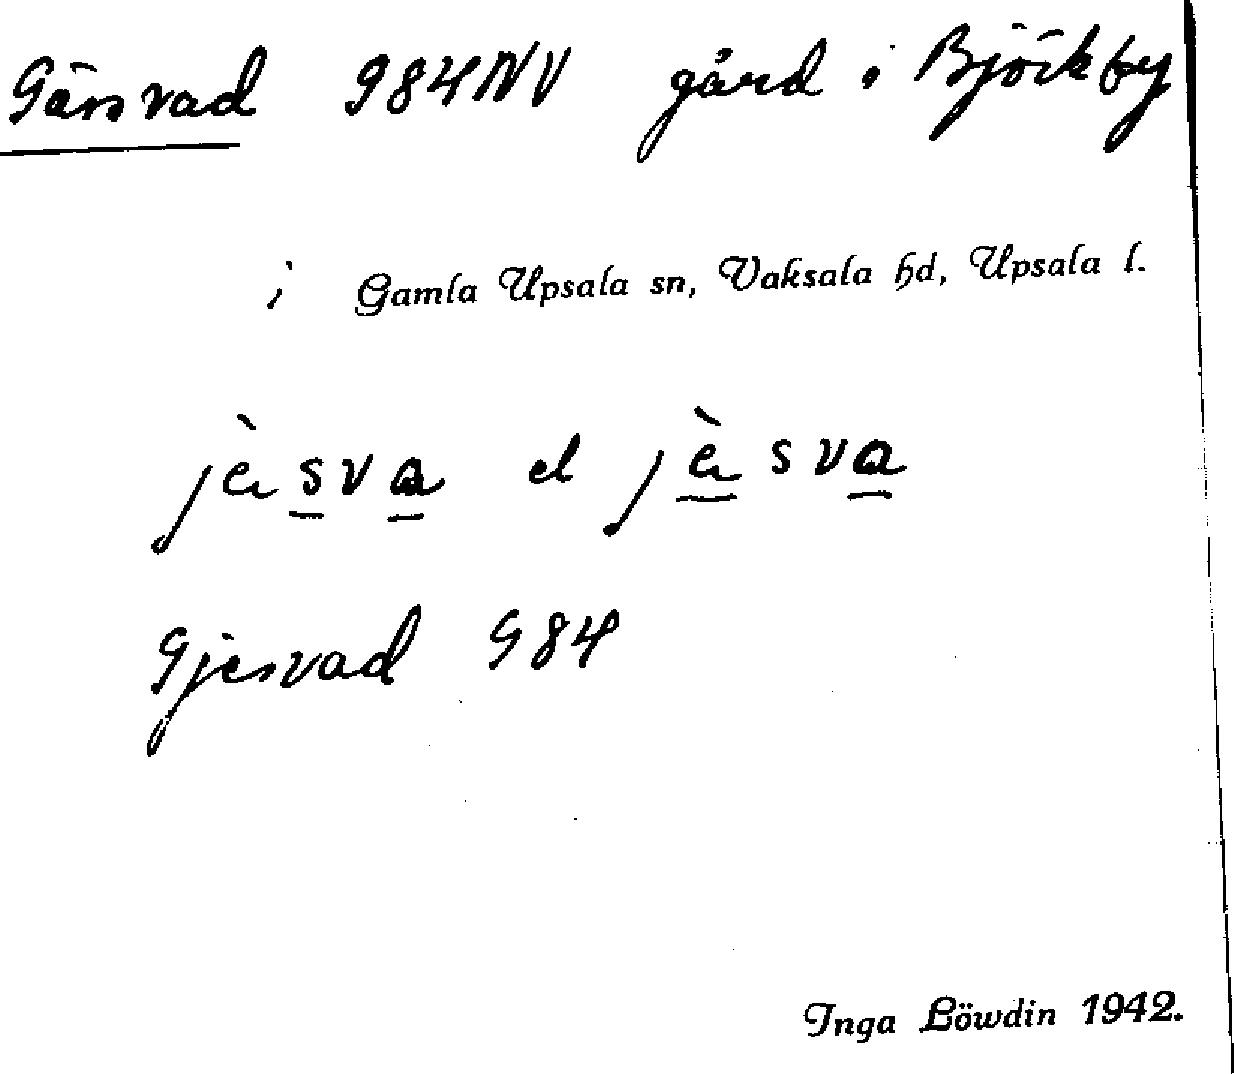 Gäsvad 984NV gård i Björkby
i Gamla Upsala sn, Vaksala hd, Upsala l.
jè̀sva el jè̀sva
Gjesvad G84
Inga Löwdin 1942.